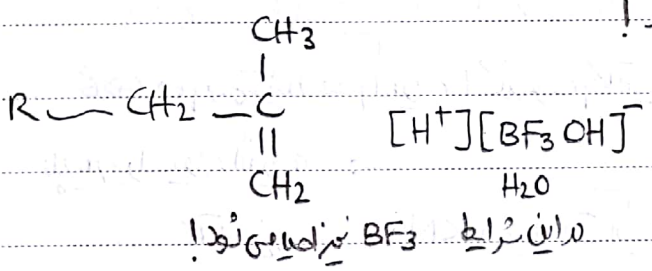 !
CH3
|
R—CH2—C [H+][BF3OH]-
||
CH2 H2O
در این شرایط BF3 نیز احیا می شود!